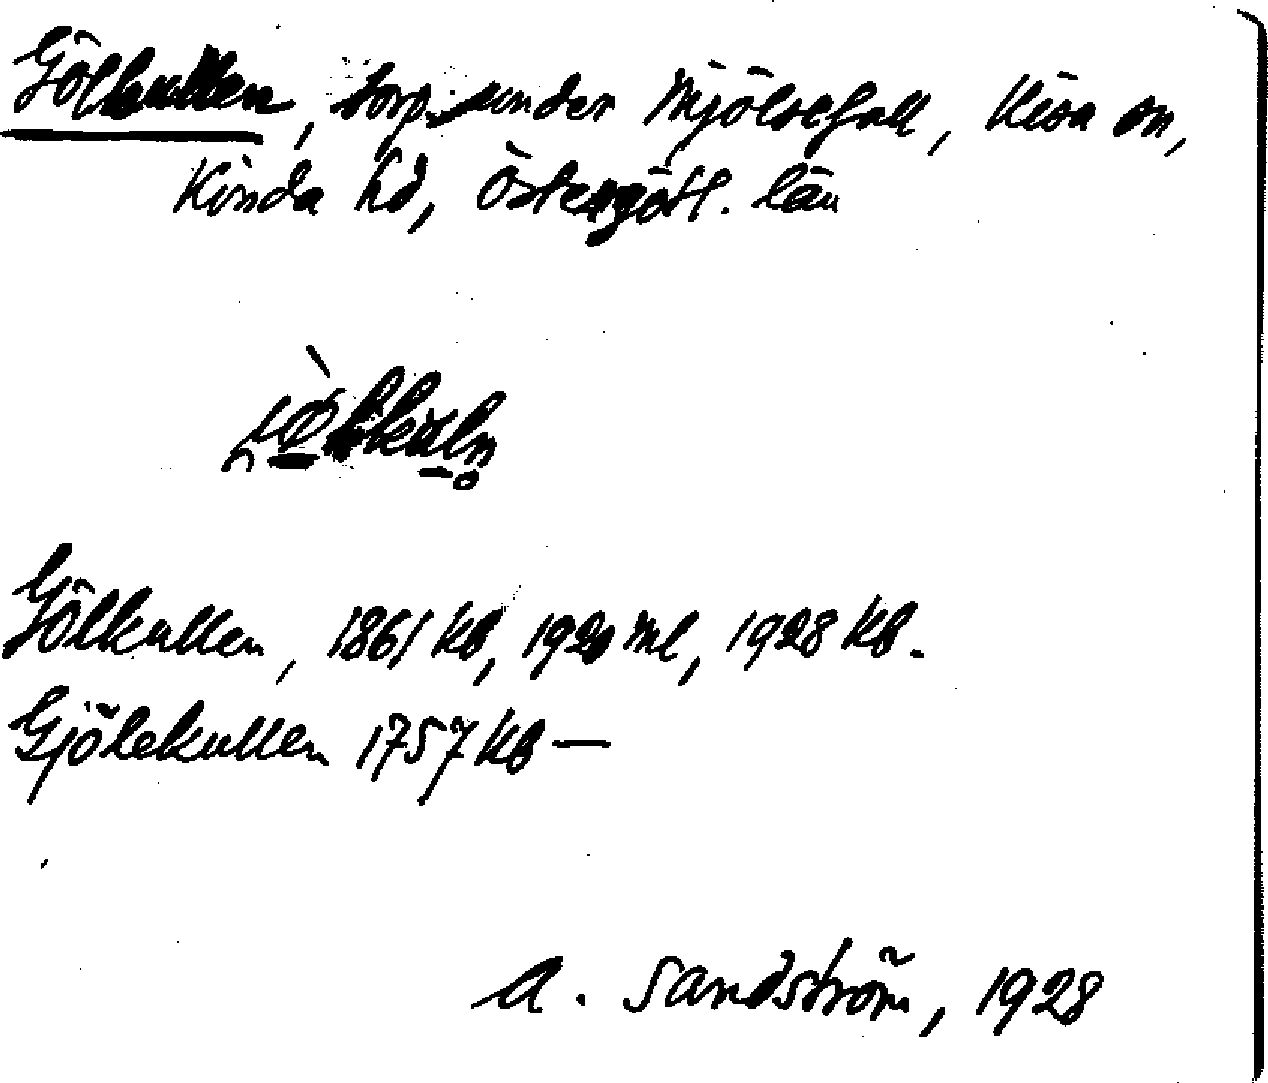 Gölkullen, torp under Mjölsefall, Kisa sn,
Kinda hd, Östergötl. län
Gölkullen, 1861 kb, 1920 ml, 1928 kb.
Gjölekullen 1757 kb —
A. Sandström, 1928